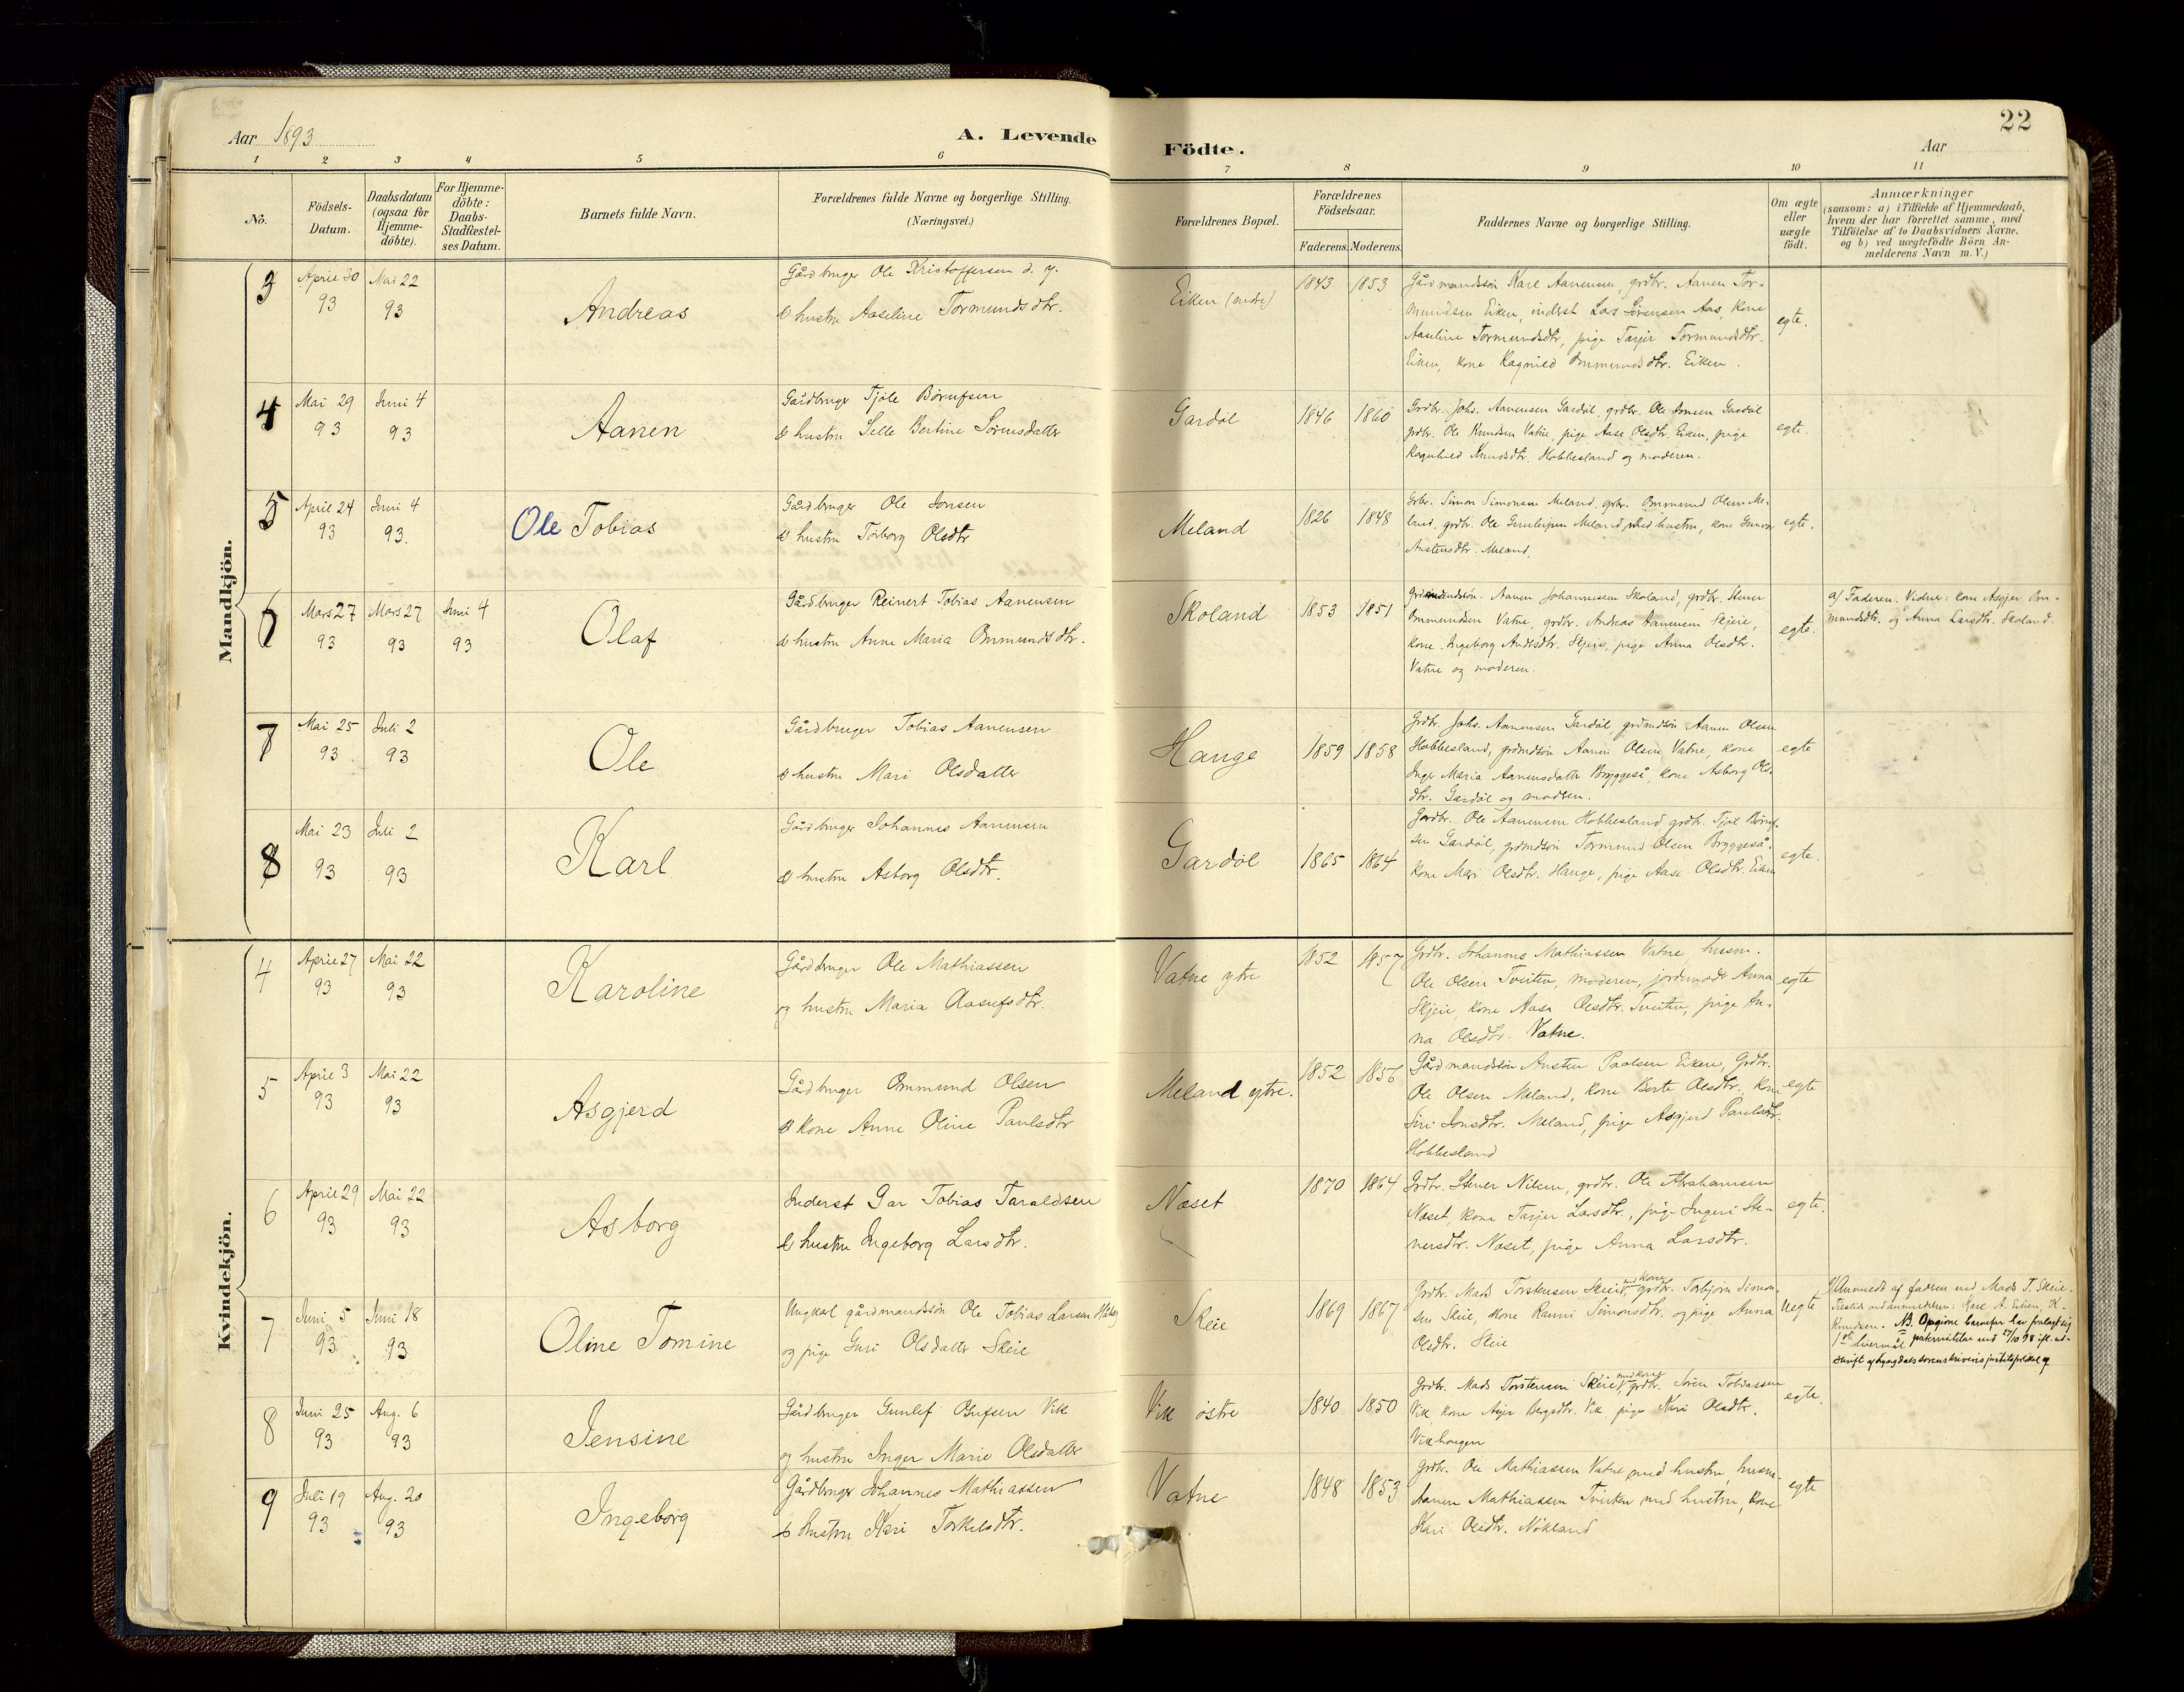 22
Aar 1893
A. Levende
Födte.
Aar
1 2 3 4 5 6 7 8 9 10 11
No.
Födsels-
Datum.
Daabsdatum
(ogsaa for
Hjemme-
döbte).
For Hjemme-
döbte:
Daabs-
Stadfæstel-
ses Datum.
Barnets fulde Navn.
Forældrenes fulde Navne og borgerlige Stilling.
(Næringsvei.)
Forældrenes Bopæl.
Forældrenes
Födselsaar.
Faderens. Moderens.
Faddernes Navne og borgerlige Stilling.
Om ægte
eller
uægte
födt.
Anmærkninger
(saasom: a) i Tilfælde af Hjemmedaab,
hvem der har forrettet samme, med
Tilföielse af to Daabsvidners Navne.
og b) ved uægtefödte Börn An-
melderens Navn m. V.)
Mandkjön.
3
April 30
93
Mai 22
93
Andreas
Gårdbruger Ole Kristoffersen d. y.
& hustru Aaseline Tormundsdtr.
Eiken (øvdre)
1843 1853
Gårdmandssøn Karl Aanensen, grdbr. Aanen Tor-
mundsen Eiken, inderst Lars Sørensen Aas, kone
Aaseline Tormundsdtr, pige Tarjer Tormundsdtr.
Eiken, kone Ragnild Ommundsdtr. Eiken.
egte.
4
Mai 29
93
Juni 4
93
Aanen
Gårdbruger Tjøle Børufsen
& hustru Selle Bertine Sørensdatter
Gardøl
1846 1860
Grdbr. Johs. Aanensen Gardøl, grdbr. Ole Jonsen Gardøl
grdbr. Ole Knudsen Vatne, pige Aase Olsdtr. Eiken, pige
Ragnhild Knudsdtr. Hobbesland og moderen.
egte.
5
April 24
93
Juni 4
93.
Ole Tobias
Gårdbruger Ole Jonsen
& hustru Torborg Olsdtr
Meland
1826 1848
Grbr. Simon Simonsen Meland, grbr. Ommund Olsen Me-
land, grdbr. Ole Gunleiksen Meland med hustru, kone Gunvor
Anstensdtr. Meland.
egte.
6
Mars 27
93
Mars 27
93
Juni 4
93
Olaf
Gårdbruger Reinert Tobias Aanensen
& hustru Anne Maria Ommundsdtr.
Skoland
1853 1851
Grdmandssøn. Aanen Johannessen Skoland, grdbr. Stener
Ommundsen Vatne, grdbr. Andreas Aanensen Skjeie,
kone Ingeborg Andrsdtr. Skjeie, pige Anna Olsdtr.
Vatne og moderen.
egte.
a) Faderen. Vidner: kone Asgjer Om-
mundsdtr. og Anna Larsdtr. Skoland.
7
Mai 25
93
Juli 2
93
Ole
Gårdbruger Tobias Aanensen
& hustru Mari Olsdatter
Hauge
1859 1858
Grdbr. Johs. Aanensen Gardøl grdmdsøn Aanen Olsen
Hobbesland, grdmdsøn Aanen Olsen Vatne, kone
Inger Maria Aanensdatter Bryggeså, kone Asborg Ols-
dtr. Gardøl og modren.
egte
8
Mai 23
93
Juli 2
93
Karl
Gårdbruger Johannes Aanensen
& hustru Asborg Olsdtr.
Gardøl
1865 1864
Gardbr. Ole Aanensen Hobbesland, grdbr. Tjøl Børuf-
sen Gardøl, grdmdsøn Tormund Olsen Bryggeså.
kone Mari Olsdtr. Hauge, pige Aase Olsdtr. Eiken
egte.
Kvindekjön.
4
April 27
93
Mai 22
93
Karoline
Gårdbruger Ole Mathiassen
og hustru Maria Aasufsdtr.
Vatne ytre
1852 1857
Grdbr. Johannes Mathiassen Vatne, husm.
Ole Olsen Tveiten, moderen, jordmodr Anna
Skjeie, kone Aasa Olsdtr. Tveiten, pige An-
na Olsdtr. Vatne.
egte
5
April 3
93
Mai 22
93
Asgjerd
Gårdbruger Ommund Olsen
& kone Anne Oline Paulsdtr
Meland ytre.
1852 1856
Gårdmandssøn Ansten Paulsen Eiken, Grdbr.
Ole Olsen Meland, kone Berte Olsdtr. kone
Siri Jonsdtr. Meland, pige Asgjerd Paulsdtr.
Hobbesland
egte
6
April 29
93
Mai 22
93
Asborg
Inderst Gar Tobias Taraldsen
& hustru Ingeborg Larsdtr.
Næset
1870 1864
Grdbr. Stener Nilsen, grdbr. Ole Abrahamsen
Næset, kone Tarjer Larsdtr., pige Ingeri Ste-
nersdtr. Næset, pige Anna Larsdtr.
egte.
7
Juni 5
93
Juni 18
93
Oline Tomine
Ungkarl gårdmandssøn Ole Tobias Larsen
og pige Guri Olsdatter Skeie
Skeie
1869 1867
Grdbr. Mads Torstensen Skeie med kone, grdbr. Torbjørn Simon-
sen Skeie, kone Ranni Simonsdtr. og pige Anna
Olsdtr. Skeie
uegte
Anmeldt af faderen ved Mads T. Skeie.
Karl A. Eiken, K.
Knudsen. NB. har fralagt sig
8
Juni 25
93
Aug. 6
93
Jensine
Gårdbruger Gunlef Bufsen Vik
og hustru Inger Marie Olsdatter
Vik østre
1840 1850
Grdbr. Mads Torstensen Skeie med kone, grdbr. Søren Tobiassen
Vik, kone Asjer Bergsdtr. Vik, pige Kari Olsdtr.
Vikhaugen
egte.
9
Juli 19
93
Aug. 20
93
Ingeborg
Gårdbruger Johannes Mathiassen
& hustru Kari Torkelsdtr.
Vatne
1848 1853
Grdbr. Ole Mathiassen Vatne med hustru, husm.
Aanen Mathiassen Tveiten med hustru, kone
Kari Olsdtr. Nökland
egte